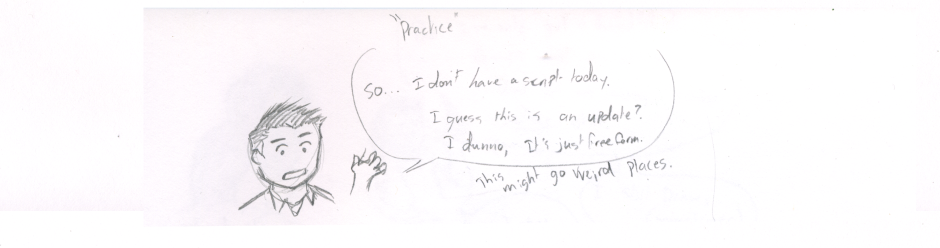 "Practice"
So... I don't have a script today.
I guess this is an update?
I dunno, It's just freeform.
This might go weird places.